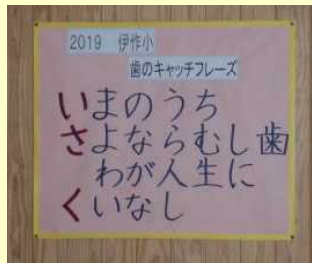 2019 伊作小
歯のキャッチフレーズ
いまのうち
さよならむし歯
わが人生に
くいなし